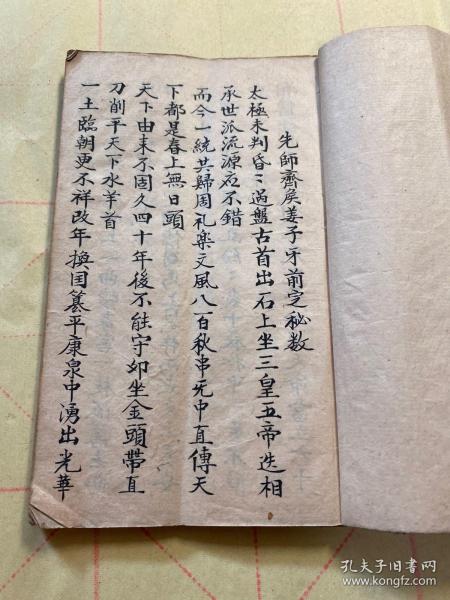 先師齊侯姜子牙前定秘数
太極未判昏〻過盤古首出石上坐三皇五帝迭相
承世派流源应不錯
而今一統共歸周礼楽文風八百秋串旡中直傳天
下都是春上無日頭
天下由来不固久四十年後不能守卯坐金頭帶直
刀削平天下水羊首
一土臨朝更不祥改年换国篡平康泉中湧出光華
孔夫子旧书网
www.kongfz.com